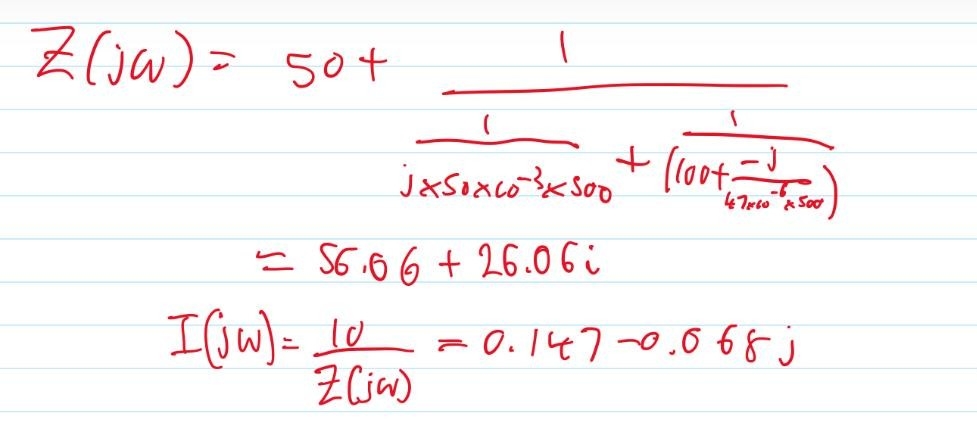 Z(jω) = 50 + 1 / (1 / (j×50×10^-3×500) + 1 / (100 + -j / (47×10^-6×500)))
= 56.06 + 26.06i
I(jω) = 10 / Z(jω) = 0.147 - 0.068j